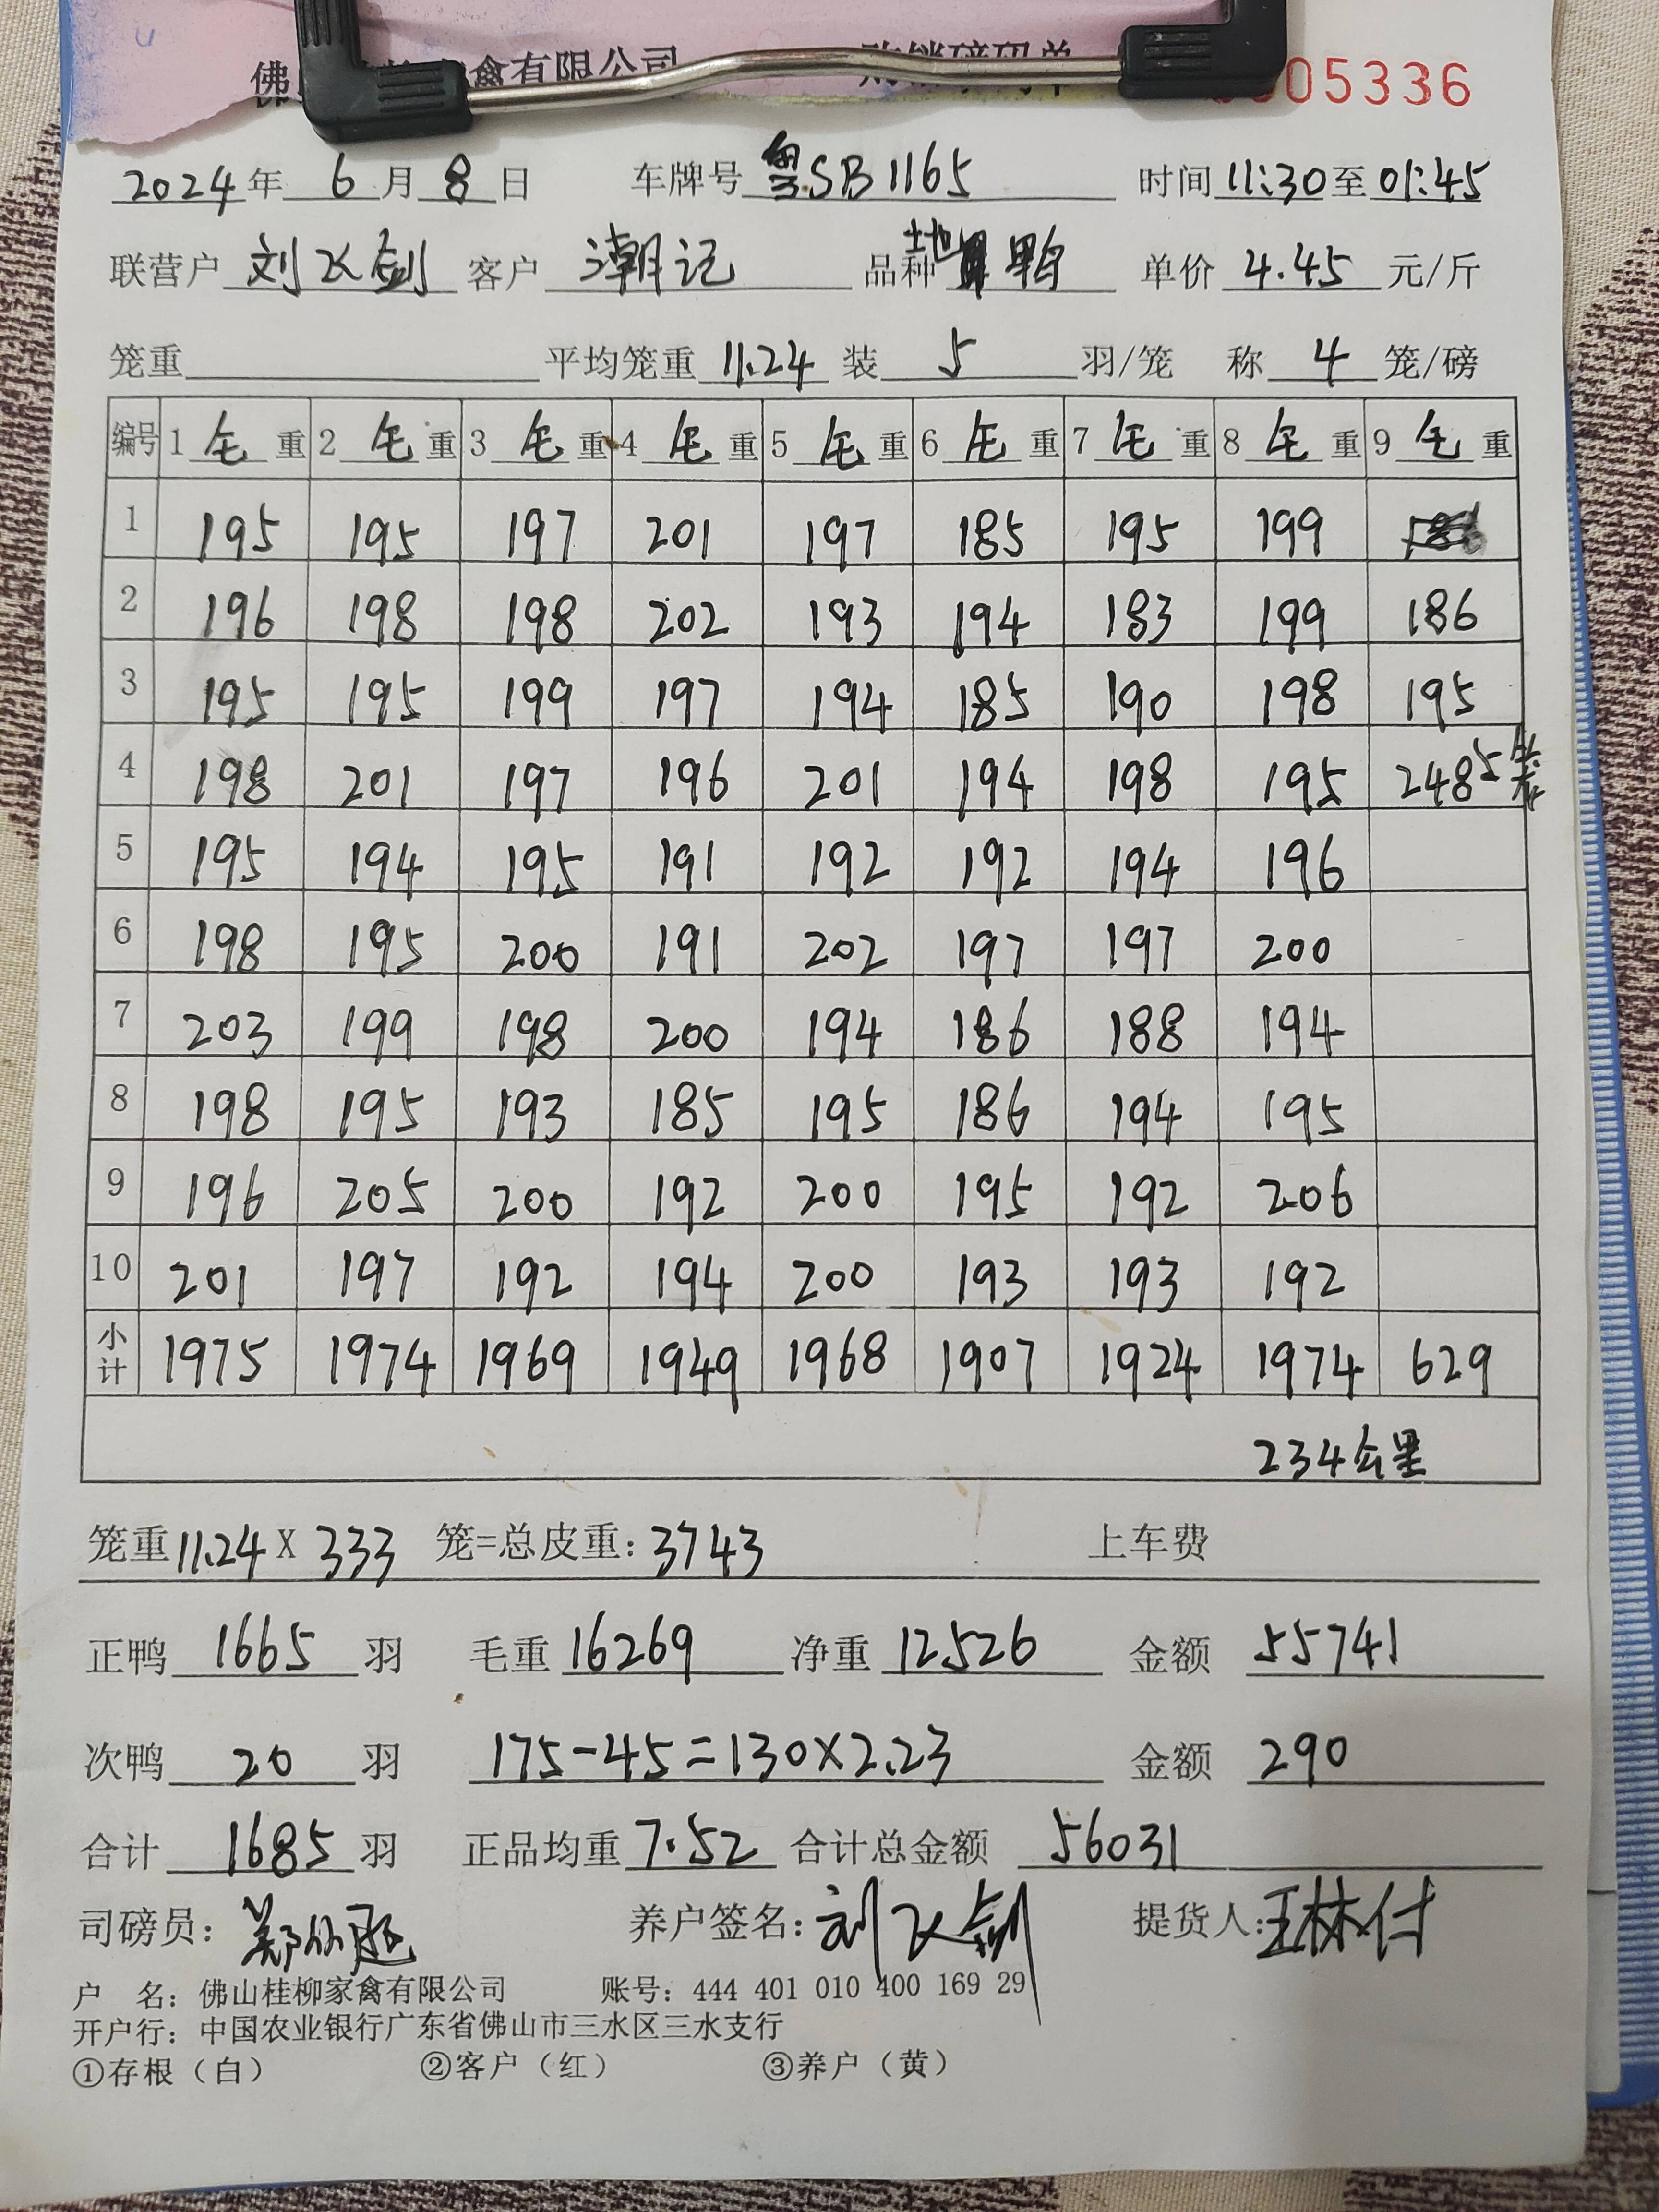 佛山 禽有限公司 购销磅码单 05336
2024年 6 月 8 日 车牌号 粤SB1165 时间 11:30 至 01:45
联营户 刘飞剑 客户 潮记 品种 土地 鸭 单价 4.45 元/斤
笼重 平均笼重 11.24 装 5 羽/笼 称 4 笼/磅
编号 1 毛 重 2 毛 重 3 毛 重 4 毛 重 5 毛 重 6 毛 重 7 毛 重 8 毛 重 9 毛 重
1 195 195 197 201 197 185 195 199
2 196 198 198 202 193 194 183 199 186
3 195 195 199 197 194 185 190 198 195
4 198 201 197 196 201 194 198 195 248 5笼
5 195 194 195 191 192 192 194 196
6 198 195 200 191 202 197 197 200
7 203 199 198 200 194 186 188 194
8 198 195 193 185 195 186 194 195
9 196 205 200 192 200 195 192 206
10 201 197 192 194 200 193 193 192
小计 1975 1974 1969 1949 1968 1907 1924 1974 629
234公里
笼重 11.24 X 333 笼=总皮重: 3743 上车费
正鸭 1665 羽 毛重 16269 净重 12526 金额 55741
次鸭 20 羽 175-45=130×2.23 金额 290
合计 1685 羽 正品均重 7.52 合计总金额 56031
司磅员: 养户签名: 刘飞剑 提货人: 王林付
户 名: 佛山桂柳家禽有限公司 账号: 444 401 010 400 169 29
开户行: 中国农业银行广东省佛山市三水区三水支行
①存根（白） ②客户（红） ③养户（黄）